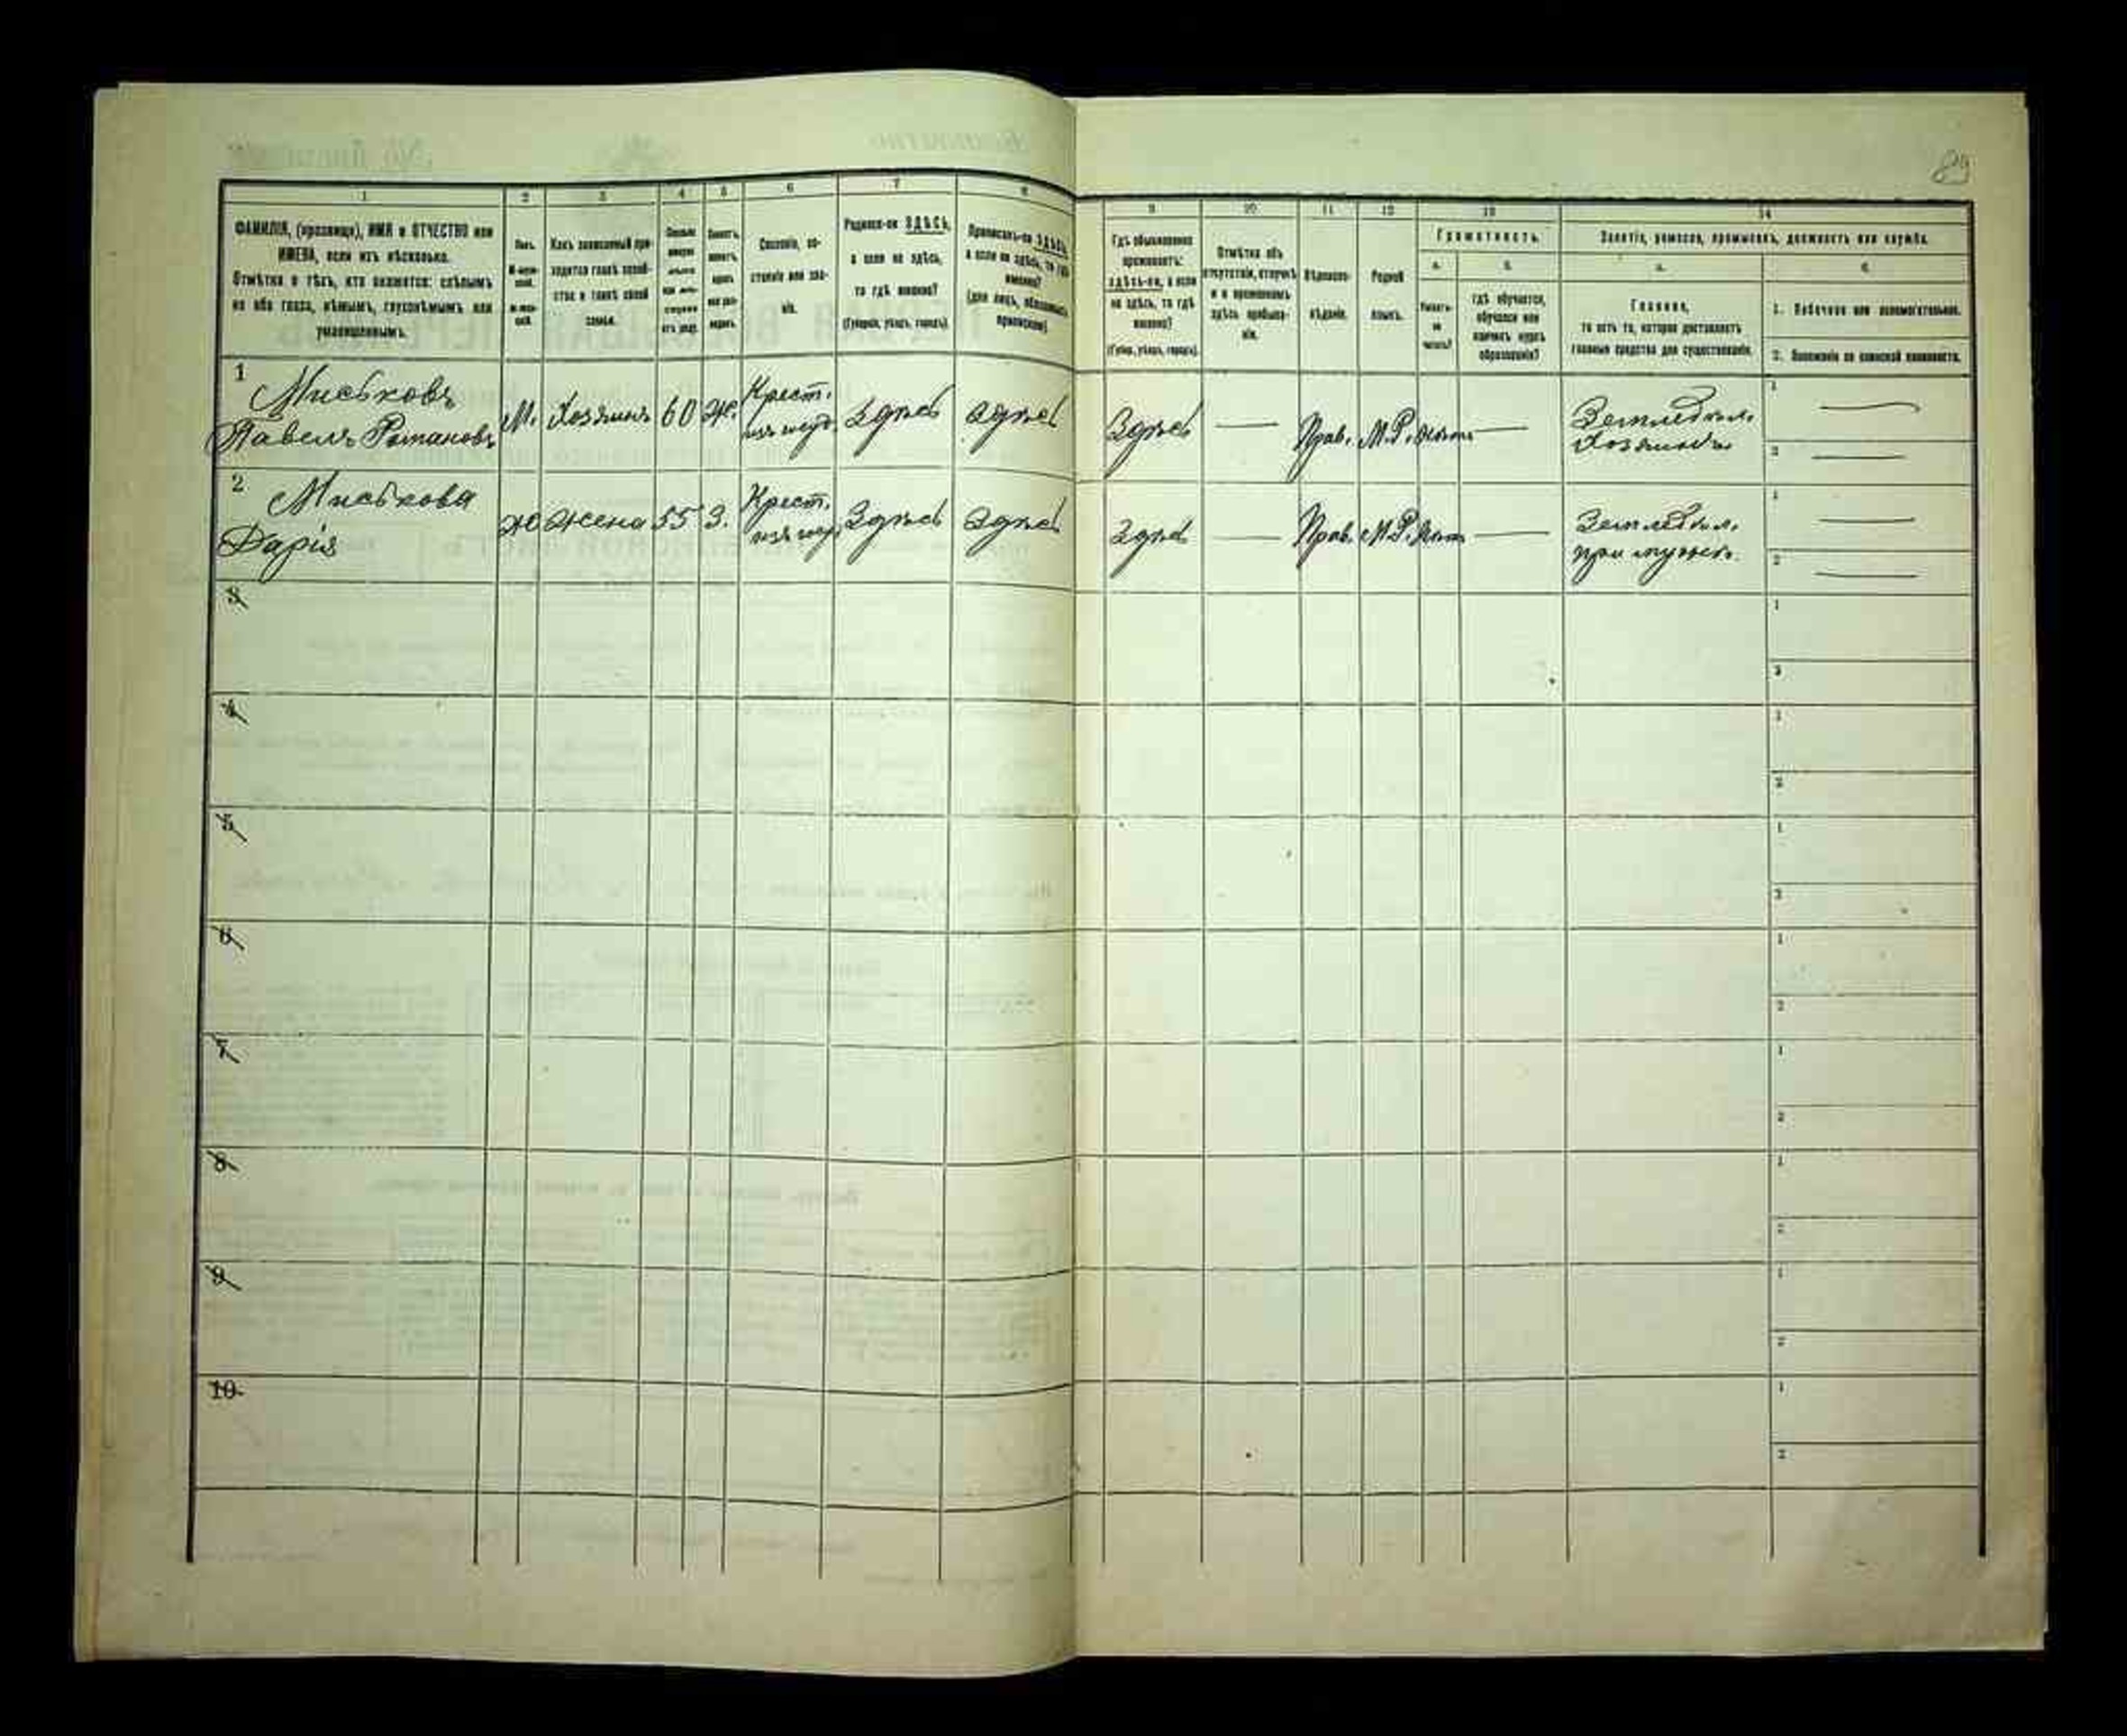 89
1 2 3 4 5 6 7 8 9 10 11 12 13 14
ФАМИЛІЯ, (прозвище), ИМЯ и ОТЧЕСТВО или
ИМЕНА, если ихъ нѣсколько.
Отмѣтка о тѣхъ, кто окажется: слѣпымъ
на оба глаза, нѣмымъ, глухонѣмымъ или
умалишеннымъ.
Полъ.
Какъ записанный при-
ходится главѣ хозяй-
ства и главѣ своей
семьи.
Сословіе, со-
стояніе или зва-
ніе.
Родился-ли ЗДѢСЬ,
а если не здѣсь,
то гдѣ именно?
(Губернія, уѣздъ, городъ).
Приписанъ-ли ЗДѢСЬ,
а если не здѣсь, то гдѣ
именно?
(для лицъ, обязанныхъ
припискою)
Гдѣ обыкновенно
проживаетъ:
здѣсь-ли, а если
не здѣсь, то гдѣ
именно?
(Губер., уѣздъ, городъ).
Отмѣтка объ
отсутствіи, отлучкѣ
и о временномъ
здѣсь пребыва-
ніи.
Вѣроиспо-
вѣданіе.
Родной
языкъ.
Грамотность.
а. б.
Умѣетъ-
ли
читать?
гдѣ обучается,
обучался или
кончилъ курсъ
образованія?
Занятіе, ремесло, промыселъ, должность или служба.
а. б.
Главное,
то есть то, которое доставляетъ
главныя средства для существованія.
1. Побочное или вспомогательное.
2. Положеніе по воинской повинности.
1 Миськовъ
Павелъ Романовъ
М. Хозяинъ 60 Ж. Крест. Здѣсь Здѣсь Здѣсь — Прав. М.Р. — Земледѣл.
Хозяинъ
1 —
2 —
2 Миськова
Дарія
Ж Жена 55 З. Крест. Здѣсь Здѣсь Здѣсь — Прав. М.Р. — Земледѣл.
при мужѣ.
1 —
2 —
3
1
2
4
1
2
5
1
2
6
1
2
7
1
2
8
1
2
9
1
2
10
1
2